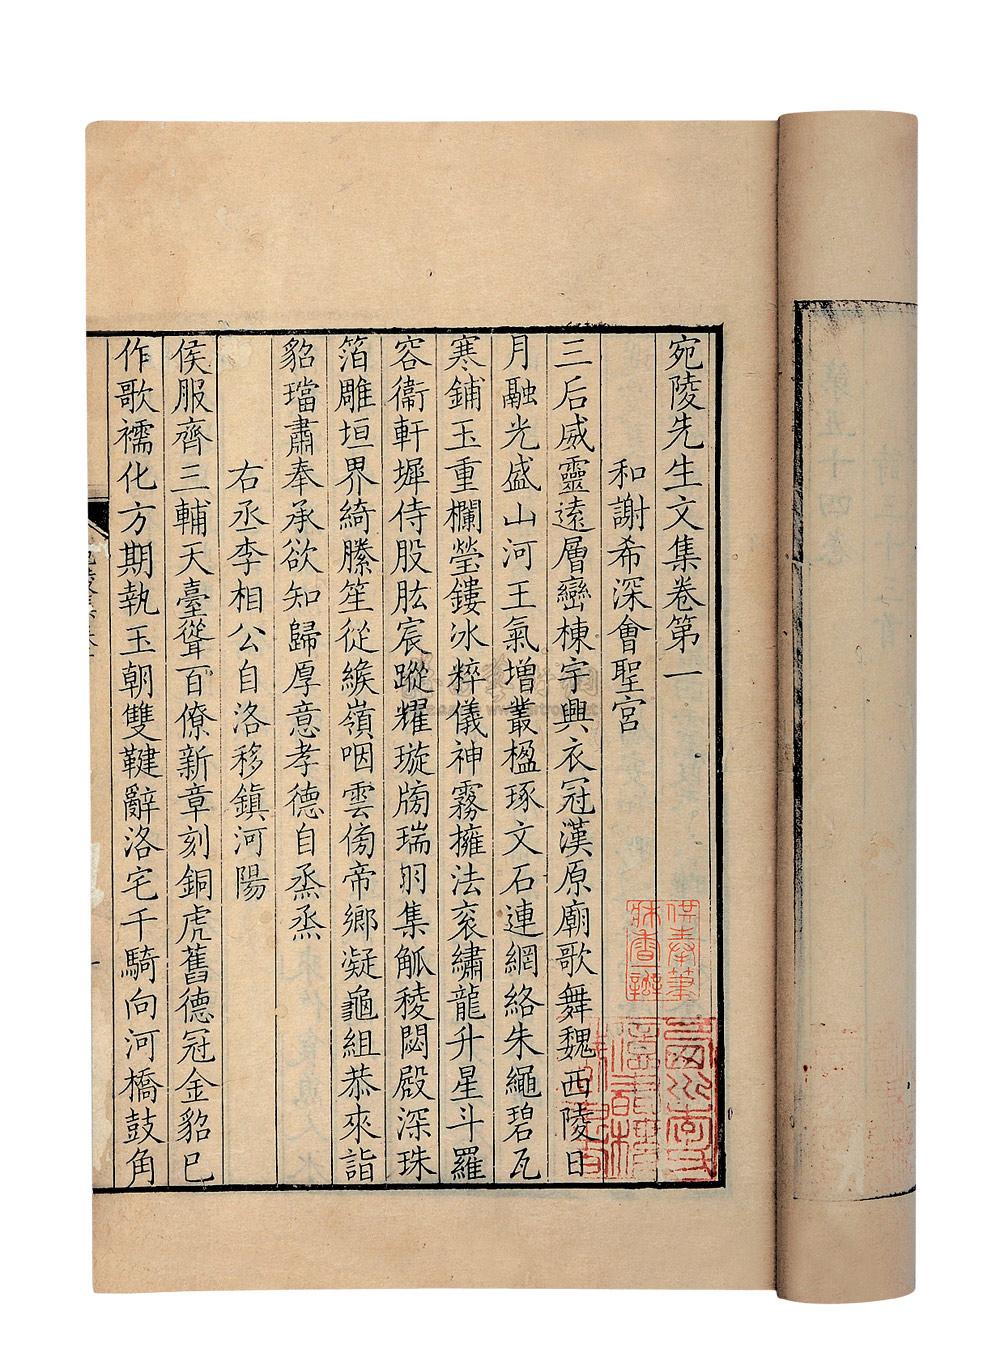 宛陵先生文集卷第一
和謝希深會聖宮
三后威靈遠層巒棟宇興衣冠漢原廟歌舞魏西陵日
月融光盛山河王氣增叢楹琢文石連網絡朱繩碧瓦
寒鋪玉重欄瑩鏤冰粹儀神霧擁法衮繡龍升星斗羅
容衞軒墀侍股肱宸蹤耀璇牓瑞羽集觚稜閟殿深珠
箔雕垣界綺縢笙從緱嶺咽雲傍帝鄉凝龜組恭來詣
貂璫肅奉承欲知歸厚意孝德自烝烝
右丞李相公自洛移鎮河陽
侯服齊三輔天臺聳百僚新章刻銅虎舊德冠金貂已
作歌襦化方期執玉朝雙鞬辭洛宅千騎向河橋鼓角